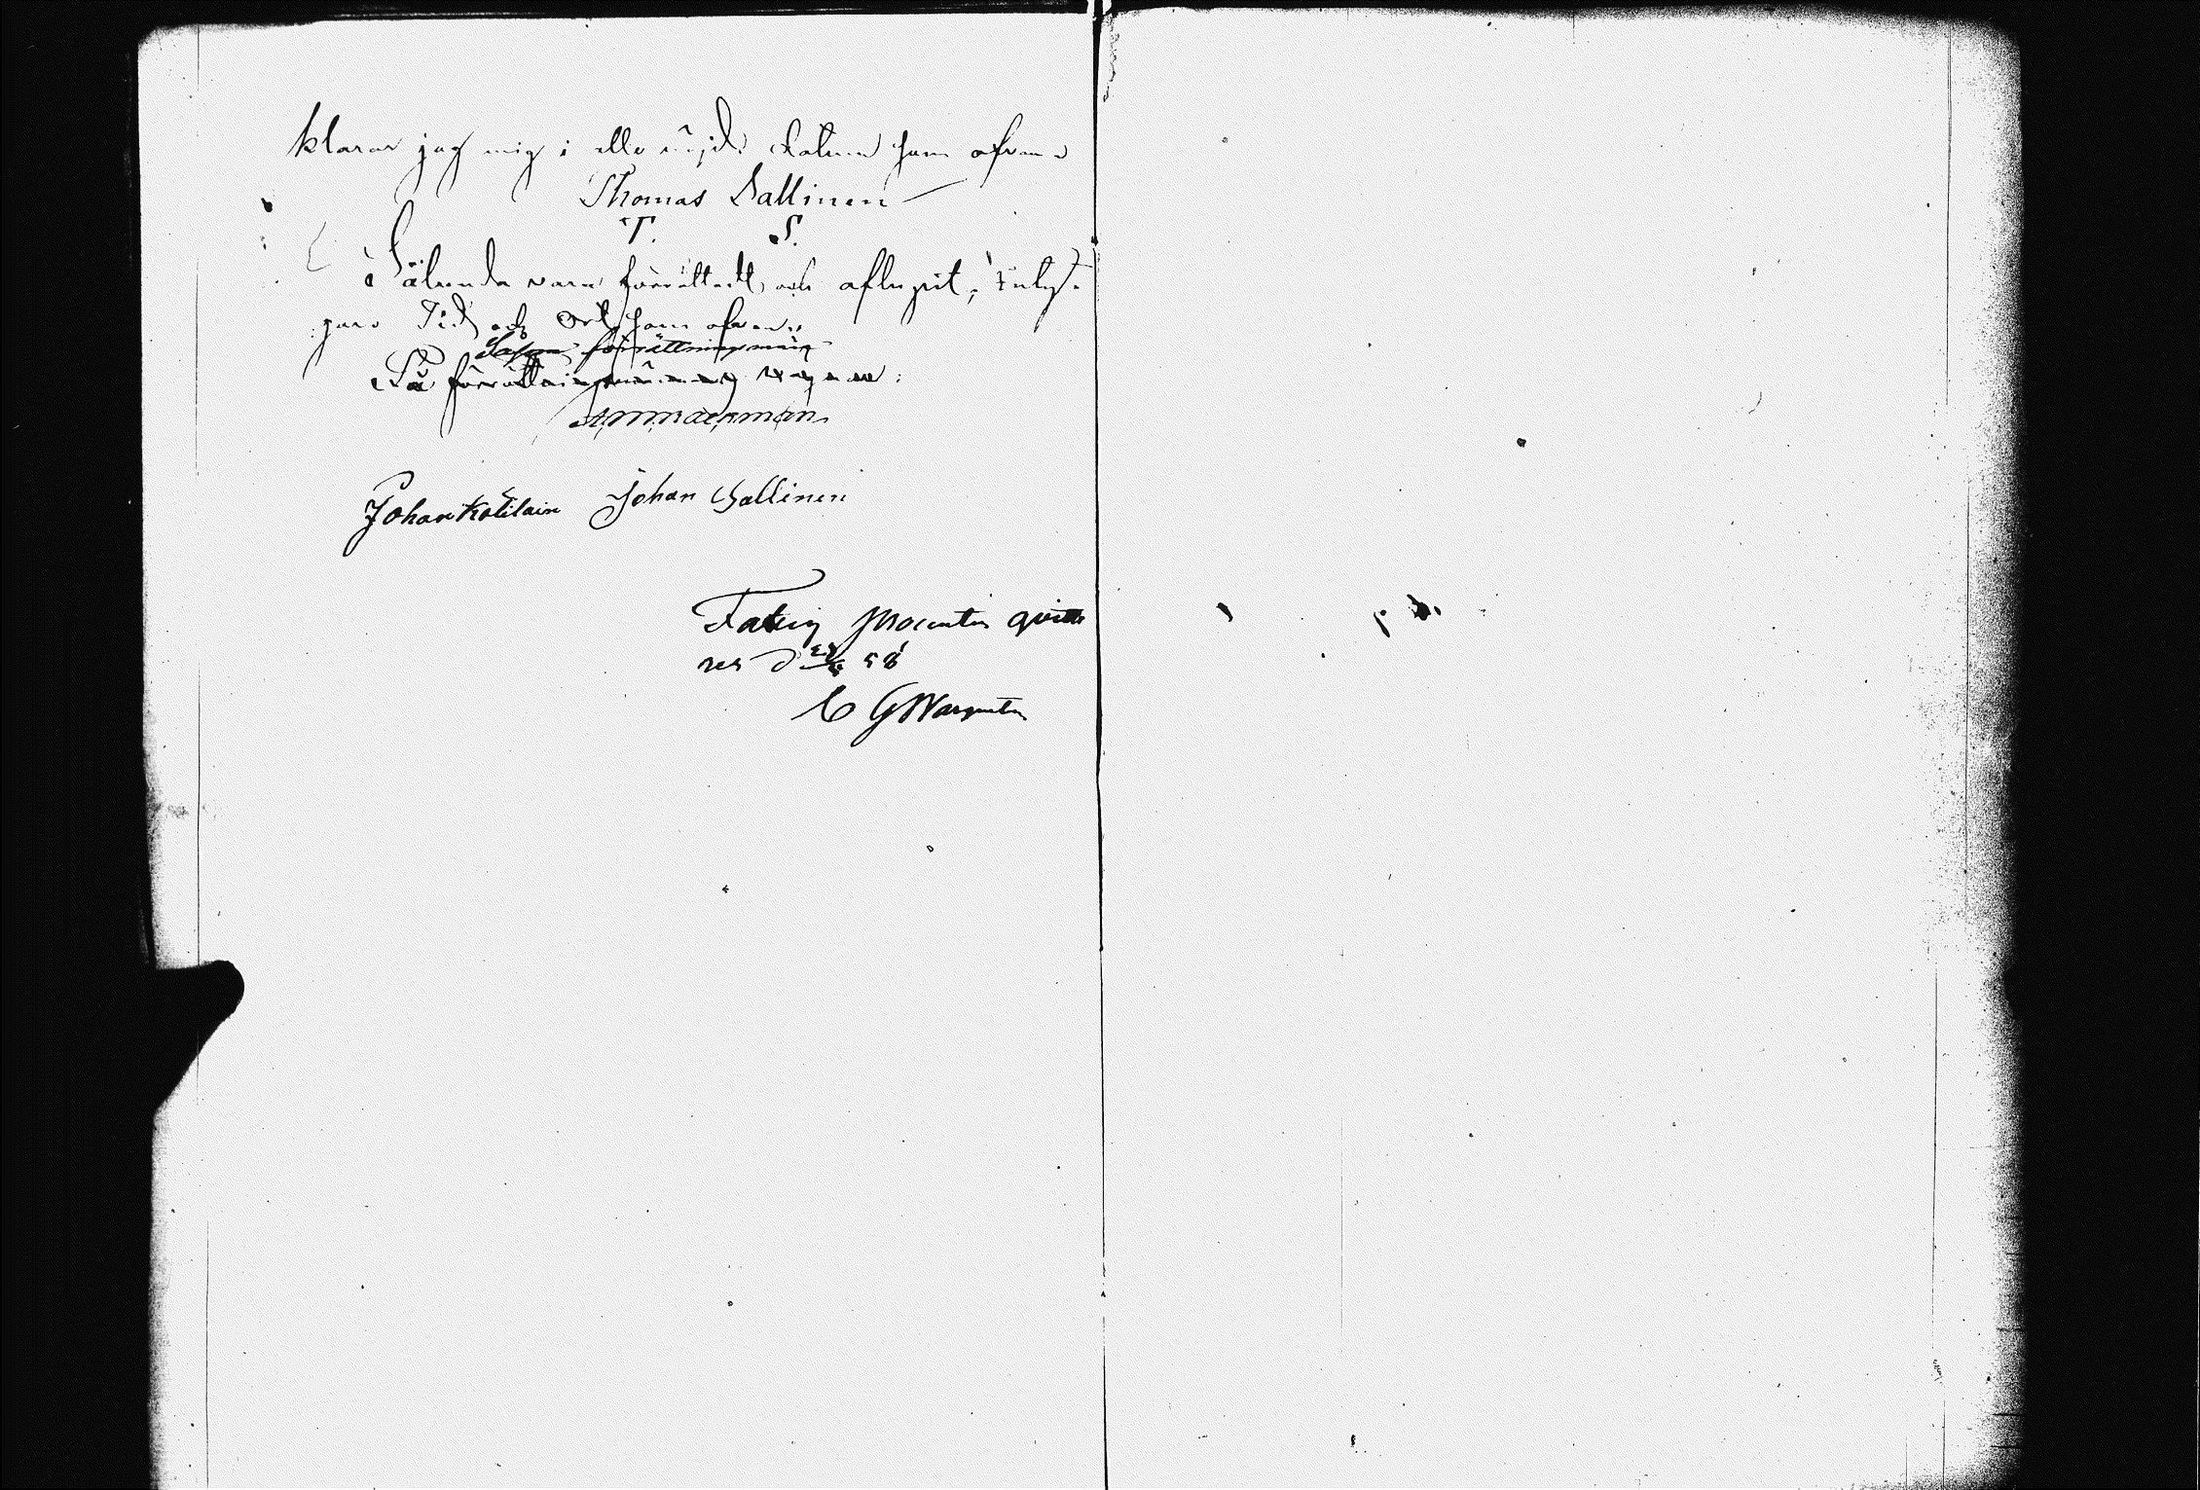 klarar jag mig i alla nöjd. Datum som ofvan
Thomas Sallinen
T. S.
Sålunda vara förrättadt och aflupit, intyga
Tid och Ort som ofvan.
förrättningsman
På förrättningsmannens vägnar:
Johan Kotilain Johan Sallinen
Fattig Procenten qvitte
res d 58
C G Wargentin